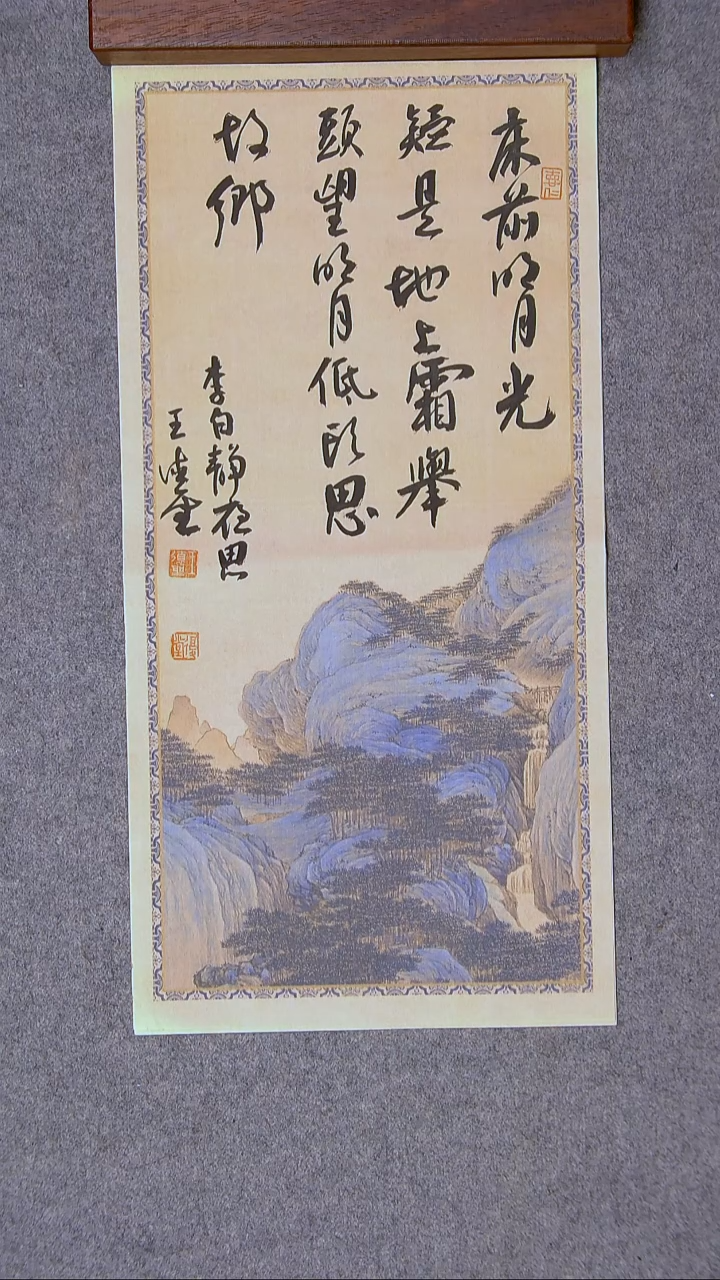 床前明月光
疑是地上霜舉
頭望明月低頭思
故鄉
李白靜夜思
王